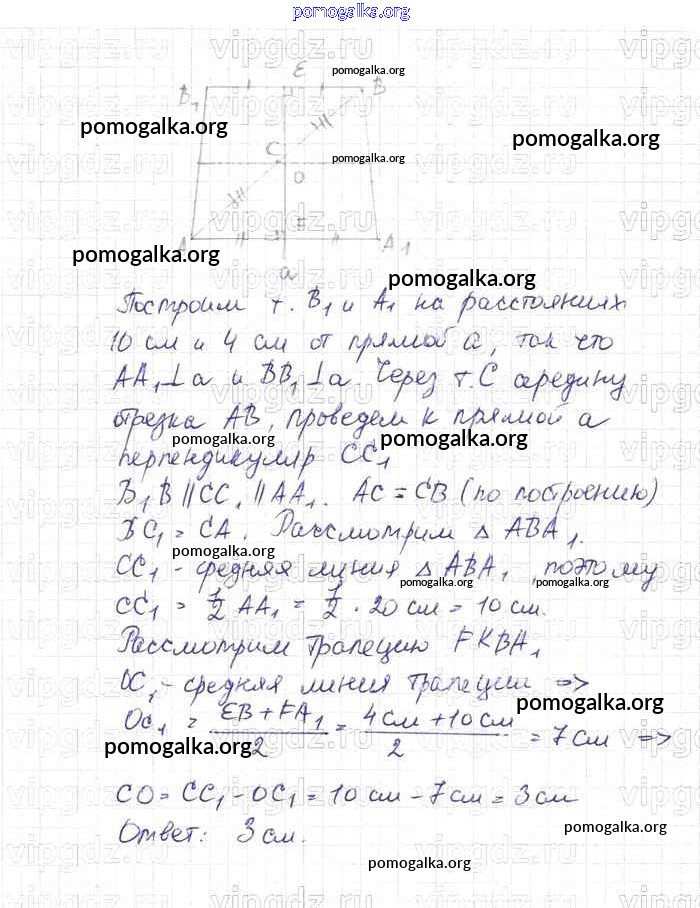 pomogalka.org
E
pomogalka.org
B₁ B
pomogalka.org
pomogalka.org
C
pomogalka.org
O
A A₁
pomogalka.org
a
pomogalka.org
Построим т. B₁ и A₁ на расстояниях
10 см и 4 см от прямой a, так что
AA₁⊥a и BB₁⊥a. Через т. C середину
отрезка AB, проведем к прямой a
pomogalka.org
pomogalka.org
перпендикуляр CC₁
B₁B || CC₁ || AA₁. AC = CB (по построению)
BC₁ = CA. Рассмотрим △ ABA₁.
pomogalka.org
CC₁ - средняя линия △ ABA₁, поэтому
pomogalka.org
pomogalka.org
CC₁ = 1/2 AA₁ = 1/2 · 20 см = 10 см.
Рассмотрим трапецию FKBA₁
OC₁ - средняя линия трапеции =>
pomogalka.org
OC₁ = (EB + FA₁)/2 = (4 см + 10 см)/2 = 7 см =>
pomogalka.org
CO = CC₁ - OC₁ = 10 см - 7 см = 3 см
Ответ: 3 см.
pomogalka.org
pomogalka.org
vipgdz.ru